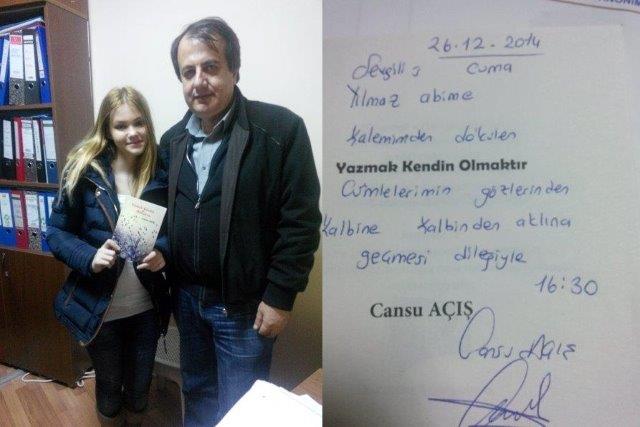 26.12.2014
Sevgili ;
Cuma
Yılmaz abime
Kalemimden dökülen
Yazmak Kendin Olmaktır
Cümlelerimin gözlerinden
Kalbine Kalbinden aklına
geçmesi dileğiyle
16:30
Cansu AÇIŞ
Cansu AÇIŞ